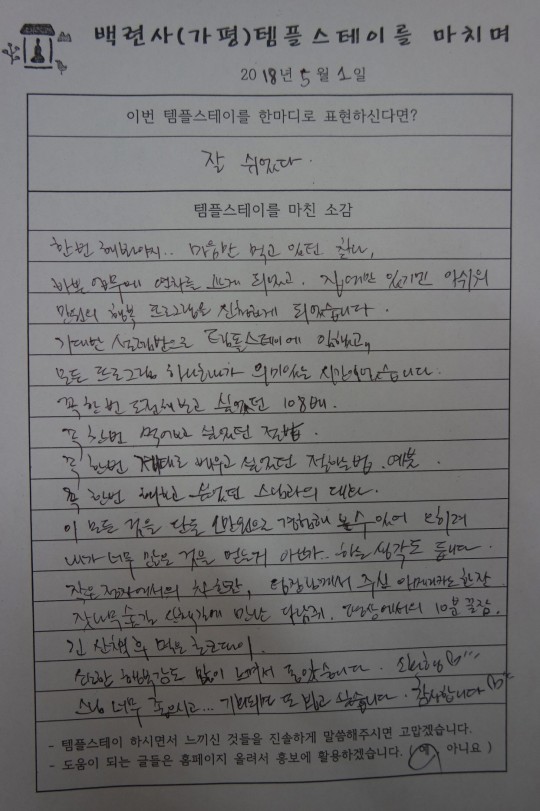 백련사(가평)템플스테이를 마치며
2018년 5월 1일
이번 템플스테이를 한마디로 표현하신다면?
잘 쉬었다.
템플스테이를 마친 소감
한번 해봐야지.. 마음만 먹고 있던 찰나,
바쁜 업무에 연차를 쓰게 되었고, 집에만 있기엔 아쉬워
만원의 행복 프로그램을 신청하게 되었습니다.
기대반 설레임반으로 템플스테이에 임했고,
모든 프로그램 하나하나가 의미있는 시간이었습니다.
꼭 한번 도전해보고 싶었던 108배.
꼭 한번 먹어보고 싶었던 절밥.
꼭 한번 제대로 배우고 싶었던 절하는법, 예불.
꼭 한번 해보고 싶었던 스님과의 대화.
이 모든 것을 단돈 만원으로 경험해 볼 수 있어 오히려
내가 너무 많은 것을 얻는거 아닌가.. 하는 생각도 듭니다.
작은 정자에서의 차 한잔, 팀장님께서 주신 아메리카노 한잔
잣나무숲길 산책길에 만난 다람쥐, 평상에서의 10분 꿀잠,
긴 산책 후 먹은 초코파이.
소소한 행복감도 많이 느껴서 좋았습니다.
스님 너무 좋으시고... 기회되면 또 뵙고 싶습니다. 감사합니다
- 템플스테이 하시면서 느끼신 것들을 진솔하게 말씀해주시면 고맙겠습니다.
- 도움이 되는 글들은 홈페이지 올려서 홍보에 활용하겠습니다. ( 예 아니요 )